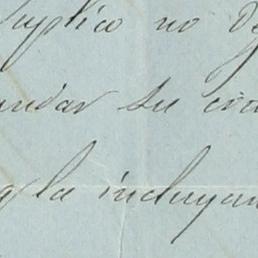 suplico no de
undar su con
y la incluyan